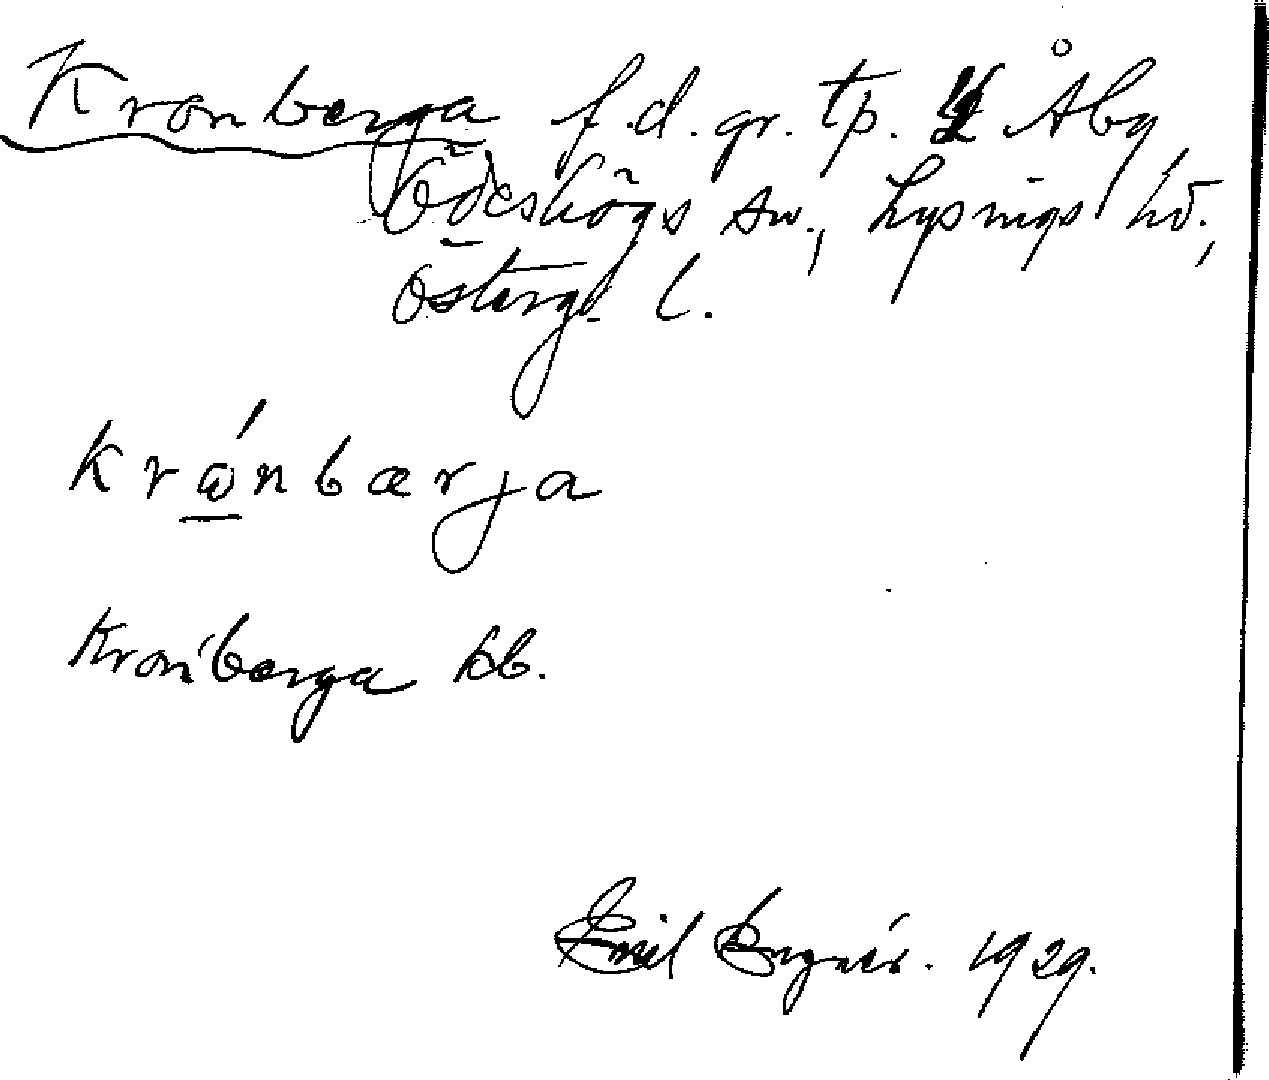 Kronberga f.d. gr. tp. Åby,
Ödeshögs sn., Lysings hd.,
Östergl l.
krώnbærja
Kronberga kb.
Emil 1929.